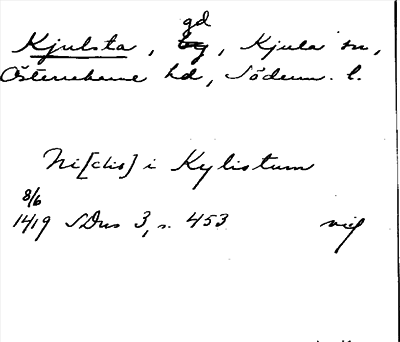 gd
Kjulsta, by, Kjula sn,
Österrekarne hd, Söderm. l.
Ni[clis] i Kylistum
8/6
1419 SDns 3, s. 453